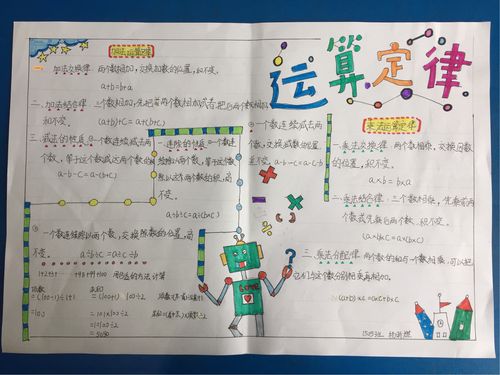 运算定律
加法运算定律
一、加法交换律：两个数相加，交换加数的位置，和不变。
a+b=b+a
二、加法结合律：三个数相加，先把前两个数相加或者，把后两个数相加
和不变。(a+b)+c=a+(b+c)
三、减法的性质 ①一个数连续减去两
个数，等于这个数减这两个数的
a-b-c=a-(b+c)
②一个数连续减去两
数，交换减数的位置，
不变。a-b-c=a-c-b
一、连除的性质 ①一个数连
续除以两个数，等于这个数
除以这两个数的积，商
不变。
a÷b÷c=a÷(b×c)
②一个数连续除以两个数，交换除数的位置，商
不变。 a÷b÷c=a÷c÷b
1+2+3+ +98+99+100 用
的方法计算
项数
=(100-1)÷1+1
=100
=(100+1)×100÷2
=101×100÷2
=10100÷2
=5050
LOVE
乘法运算定律
一、乘法交换律：两个数相乘，交换因数
的位置，积不变。
a×b=b×a
二、乘法结合律：三个数相乘，先乘前两
个数或先乘后两个数，积不变。
(a×b)×c=a×(b×c)
三、乘法分配律：两个数的和与一个数相乘，可以把
它们与这个数分别相乘再相加。
(a+b)×c=a×c+b×c